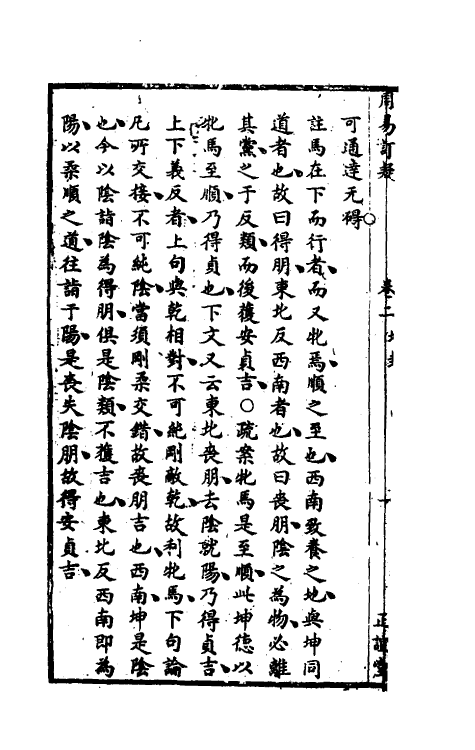 周易訂疑
卷二
正誼堂
可通達无碍○
註馬在下而行者而又牝馬順之至也西南致養之地與坤同
道者也故曰得朋東北反西南者也故曰喪朋陰之為物必離
其黨之于反類而後獲安貞吉○疏案牝馬是至順此坤德以
牝馬至順乃得貞也下文又云東北喪朋去陰就陽乃得貞吉
上下義反者上句與乾相對不可純剛敵乾故利牝馬下句論
凡所交接不可純陰當須剛柔交錯故喪朋吉也西南坤是陰
也今以陰詣陰為得朋俱是陰類不獲吉也東北反西南即為
陽以柔順之道往詣于陽是喪失陰朋故得安貞吉